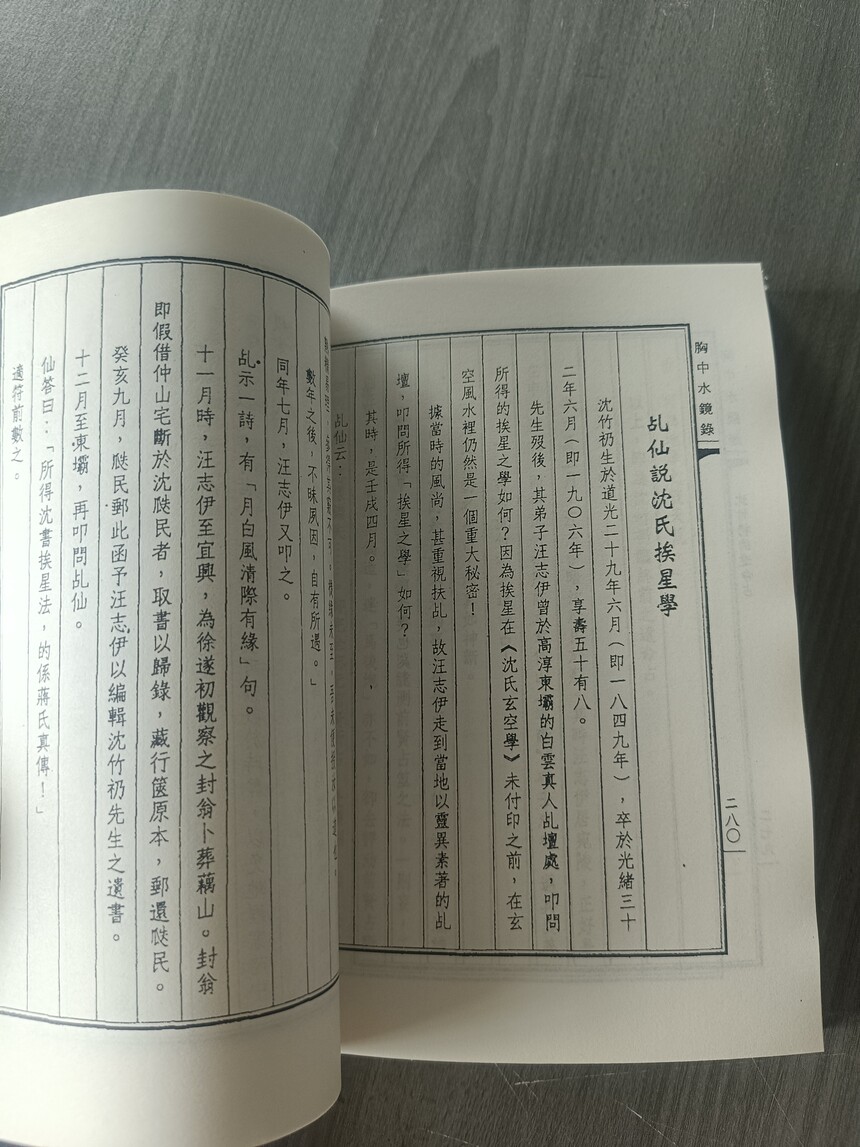 胸中水鏡錄
二八〇
乩仙說沈氏挨星學
沈竹礽生於道光二十九年六月(即一八四九年),卒於光緒三十
二年六月(即一九〇六年),享壽五十有八。
先生歿後,其弟子汪志伊曾於高淳東壩的白雲真人乩壇處,叩問
所得的挨星之學如何?因為挨星在《沈氏玄空學》未付印之前,在玄
空風水裡仍然是一個重大秘密!
據當時的風尚,甚重視扶乩,故汪志伊走到當地以靈異素著的乩
壇,叩問所得「挨星之學」如何?
其時,是壬戌四月。
乩仙云:
數年之後,不昧夙因,自有所遇。」
同年七月,汪志伊又叩之。
乩示一詩,有「月白風清際有緣」句。
十一月時,汪志伊至宜興,為徐遂初觀察之封翁卜葬藕山。封翁
即假借仲山宅斷於沈瓞民者,取書以歸錄,藏行篋原本,郵還瓞民。
癸亥九月,瓞民郵此函予汪志伊以編輯沈竹礽先生之遺書。
十二月至東壩,再叩問乩仙。
仙答曰:「所得沈書挨星法,的係蔣氏真傳!」
適符前數之。